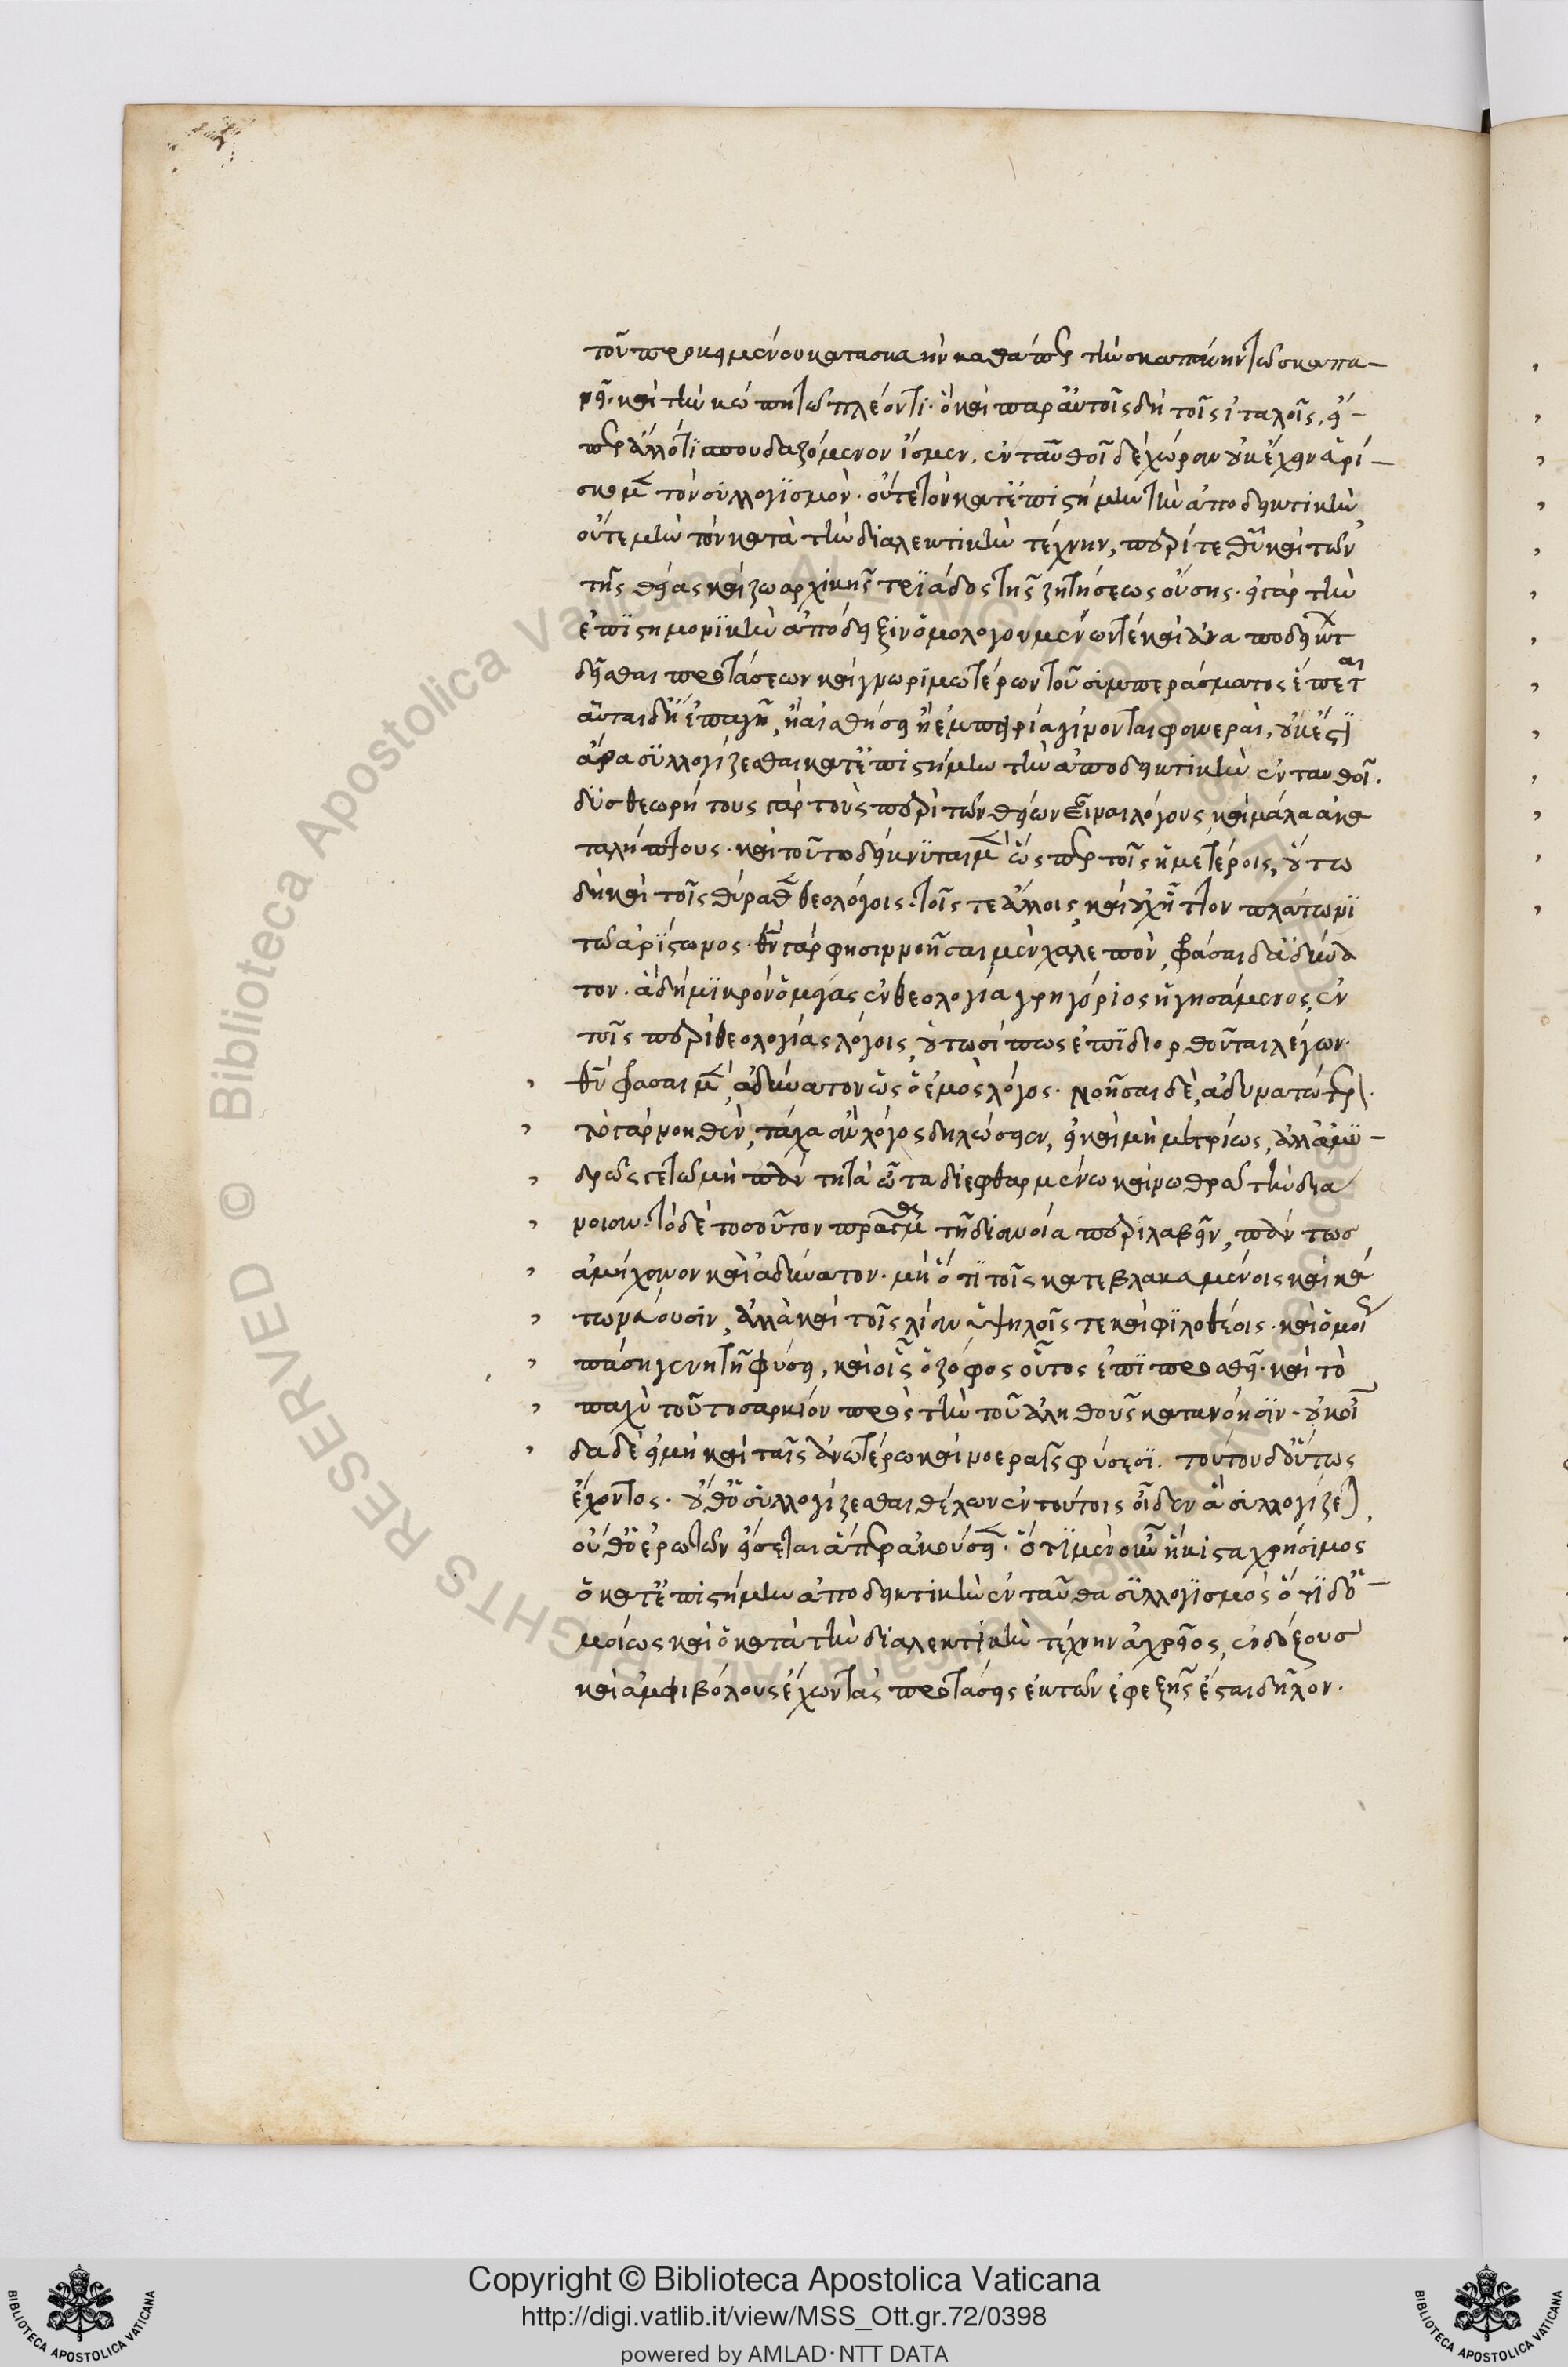 τοῦ προκειμένου κατασκευὴν καθάπερ τὴν σκαπάνην τῶ σκαπα-
νεῖ· καὶ τὴν κώπην τῶ πλέοντι· ὃ καὶ παρ αὐτοῖς δὴ τοῖς ἰταλοῖς, εἴ-
περ ἄλλό τι σπουδαζόμενον ἴσμεν, ἐνταυθοῖ δὲ χώραν οὐκ ἔχειν εὑρί-
σκομεν τὸν συλλογισμὸν· οὔτε τὸν κατ ἐπιστήμην τὴν ἀποδεικτικὴν
οὔτε μὴν τὸν κατὰ τὴν διαλεκτικὴν τέχνην, περί τε θεοῦ καὶ τῶν
τῆς θείας καὶ ζωαρχικῆς τριάδος τῆς ζητήσεως οὔσης· εἰ γὰρ τὴν
ἐπιστημονικὴν ἀπόδειξιν ὁμολογουμένων τὲ καὶ ἀναποδείκτων
δεῖσθαι προτάσεων καὶ γνωριμωτέρων τοῦ συμπεράσματος ἕπεται
αὗται δὴ ἐπαγωγῆ, ἢ αἰσθήσει ἢ ἐμπειρία γίνονται φανεραὶ, οὐκ ἔστι
ἄρα συλλογίζεσθαι κατ ἐπιστήμην τὴν ἀποδεικτικὴν ἐνταυθοῖ.
δυσθεωρήτους γὰρ τοὺς περὶ τῶν θείων εἶναι λόγους καὶ μάλα ἀκα
ταλήπτους· καὶ τοῦτο δείκνυται μὲν ὥσπερ τοῖς ἡμετέροις, οὕτω
δὴ καὶ τοῖς θύραθεν θεολόγοις· τοῖς τε ἄλλοις καὶ οὐχ ἧττον πλάτωνι
τῶ ἀρίστωνος· θεὸν γάρ φησι νοῆσαι μὲν χαλεπὸν, φράσαι δ ἀδύνα
τον· ἃ δὴ μικρὸν ὁ μέγας ἐν θεολογία γρηγόριος ἡγησάμενος, ἐν
τοῖς περὶ θεολογίας λόγοις, οὑτωσί πως ἐπιδιορθοῦται λέγων·
θεὸν φράσαι μὲν, ἀδύνατον ὡς ὁ ἐμὸς λόγος· νοῆσαι δὲ, ἀδυνατώτερον·
τὸ γὰρ νοηθὲν, τάχα ἂν λόγος δηλώσειεν, εἰ καὶ μὴ μετρίως, ἀλλ ἀμυ-
δρῶς γε τῶ μὴ πάντη τὰ ὦτα διεφθαρμένω καὶ νωθρῶ τὴν διά
νοιαν· τὸ δὲ τοσοῦτον πρᾶγμα τῆ διανοία περιλαβεῖν, πάντως
ἀμήχανον καὶ ἀδύνατον· μὴ ὅτι τοῖς καταβλακευμένοις καὶ κά
τω νεύουσιν, ἀλλὰ καὶ τοῖς λίαν ὑψηλοῖς τε καὶ φιλοθέοις· καὶ ὁμοίως
πάση γεννητῆ φύσει, καὶ οἷς ὁ ζόφος οὗτος ἐπιπροσθεῖ· καὶ τὸ
παχὺ τοῦτο σαρκίον πρὸς τὴν τοῦ ἀληθοῦς κατανόησιν· οὐκ οἶ
δα δὲ εἰ μὴ καὶ ταῖς ἀνωτέρω καὶ νοεραῖς φύσεσι. τούτου δ οὕτως
ἔχοντος· οὔθ ὁ συλλογίζεσθαι θέλων ἐν τούτοις οἶδεν ἃ συλλογίζεται,
οὔθ ὁ ἐρωτῶν εἴσεται ἅπερ ἀκούσειεν· ὅτι μὲν οὖν ἥκιστα χρήσιμος
ὁ κατ ἐπιστήμην ἀποδεικτικὴν ἐνταῦθα συλλογισμός ὅτι δ ὁ-
μοίως καὶ ὁ κατὰ τὴν διαλεκτικὴν τέχνην ἀχρεῖος, ἐνδόξους
καὶ ἀμφιβόλους ἔχων τὰς προτάσεις ἐκ τῶν ἐφεξῆς ἔσται δῆλον·
Copyright © Biblioteca Apostolica Vaticana
http://digi.vatlib.it/view/MSS_Ott.gr.72/0398
powered by AMLAD·NTT DATA